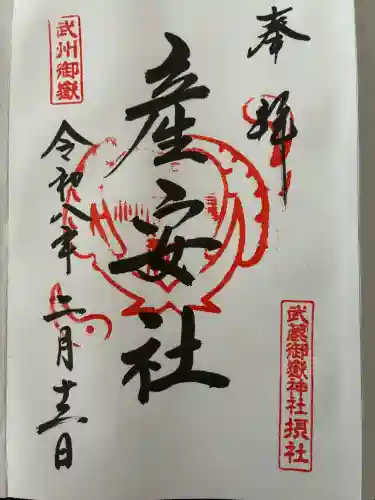 奉拝
武蔵御嶽神社摂社
産安社
武州御嶽
令和八年二月十三日